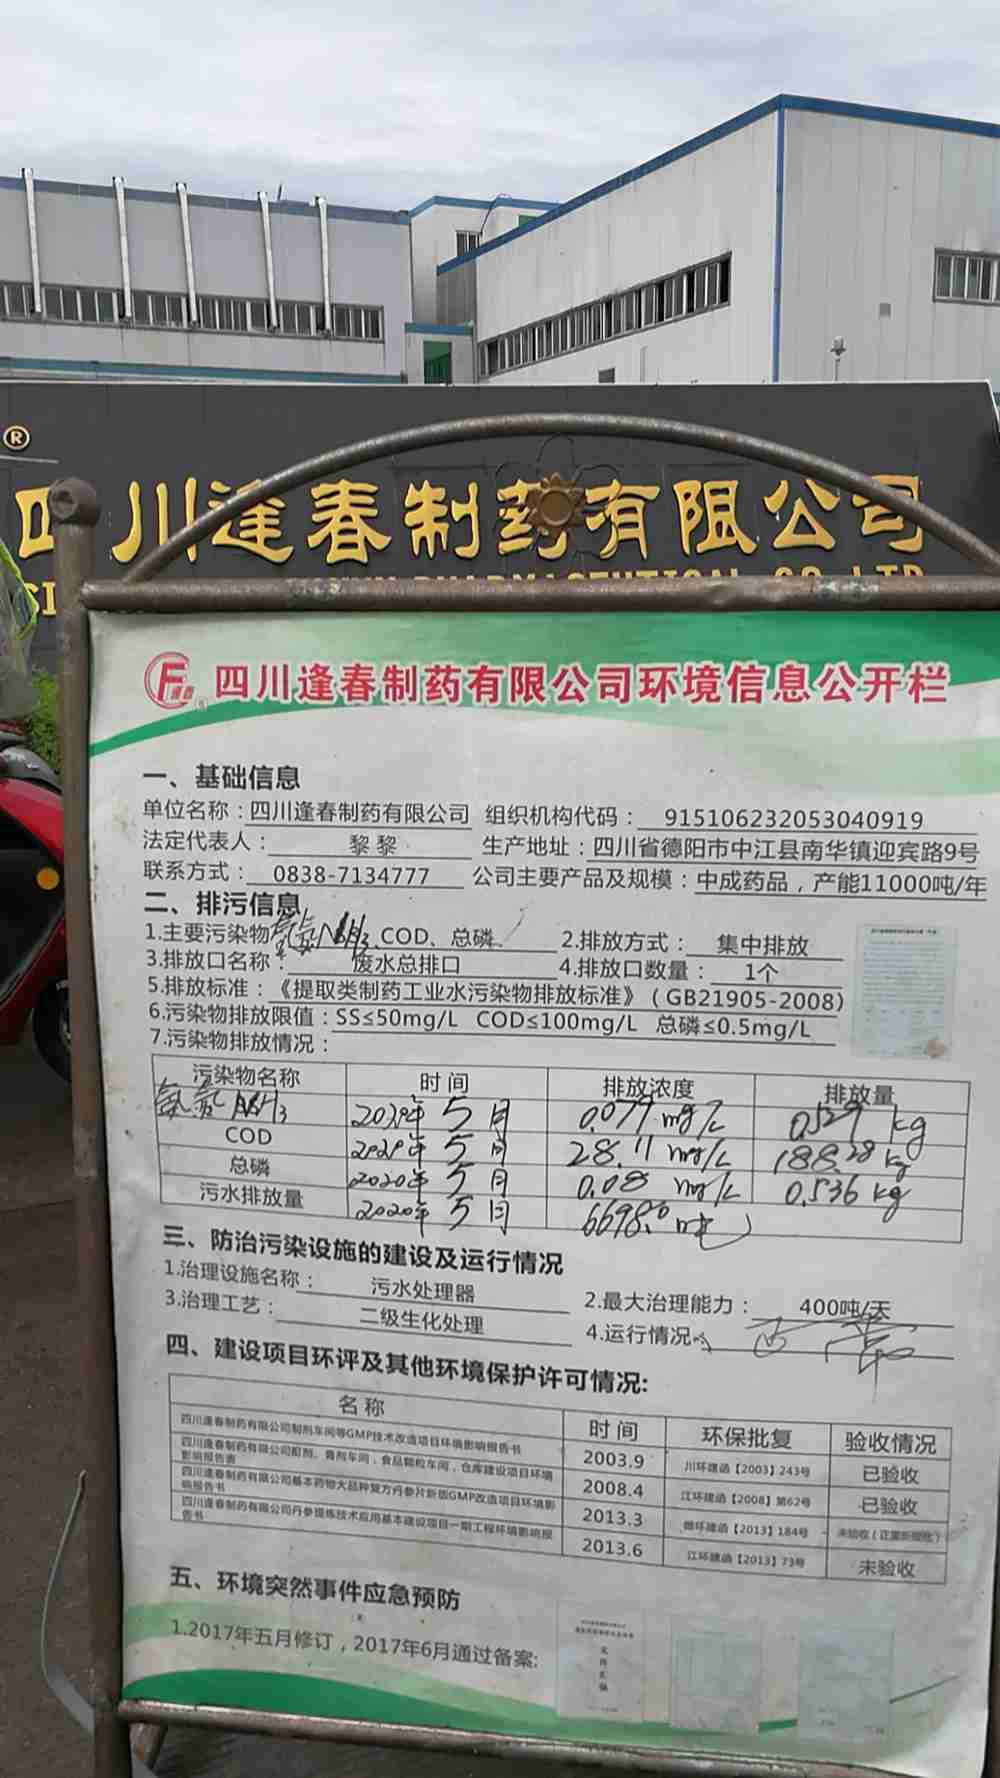 ®
四川逢春制药有限公司
四川逢春制药有限公司环境信息公开栏
一、基础信息
单位名称：四川逢春制药有限公司 组织机构代码： 915106232053040919
法定代表人： 黎黎 生产地址：四川省德阳市中江县南华镇迎宾路9号
联系方式： 0838-7134777 公司主要产品及规模：中成药品，产能11000吨/年
二、排污信息
1.主要污染物 氨氮NH3、COD、总磷 2.排放方式： 集中排放
3.排放口名称： 废水总排口 4.排放口数量： 1个
5.排放标准：《提取类制药工业水污染物排放标准》（GB21905-2008）
6.污染物排放限值：SS≤50mg/L COD≤100mg/L 总磷≤0.5mg/L
7.污染物排放情况：
污染物名称 时间 排放浓度 排放量
氨氮NH3 2020年 5月 0.079 mg/L 0.529 kg
COD 2020年 5月 28.11 mg/L 188.28 kg
总磷 2020年 5月 0.08 mg/L 0.536 kg
污水排放量 2020年 5月 6698.0吨
三、防治污染设施的建设及运行情况
1.治理设施名称： 污水处理器 2.最大治理能力： 400吨/天
3.治理工艺： 二级生化处理 4.运行情况： 正常
四、建设项目环评及其他环境保护许可情况:
名称 时间 环保批复 验收情况
四川逢春制药有限公司制剂车间等GMP技术改造项目环境影响报告书 2003.9 川环建函【2003】243号 已验收
四川逢春制药有限公司配剂、膏剂车间，食品颗粒车间，仓库建设项目环境影响报告表 2008.4 江环建函【2008】第62号 已验收
四川逢春制药有限公司基本药物大品种复方丹参片新版GMP改造项目环境影响报告书 2013.3 德环建函【2013】184号 未验收（正重新报批）
四川逢春制药有限公司丹参提炼技术应用基本建设项目一期工程环境影响报告书 2013.6 江环建函【2013】73号 未验收
五、环境突然事件应急预防
1.2017年五月修订，2017年6月通过备案: